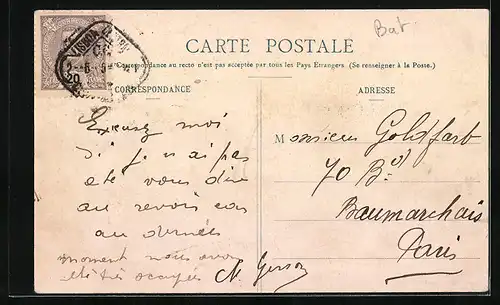 Bat.
CARTE POSTALE
Correspondance au recto n'est pas acceptée par tous les Pays Etrangers. (Se renseigner à la Poste.)
CORRESPONDANCE
Excusez moi
si je n'ai pas
été vous dire
au revoir car
au dernier
moment nous avons
été très occupés
N. Gerson
ADRESSE
Monsieur Goldfarb
70 Bd
Baumarchais
Paris